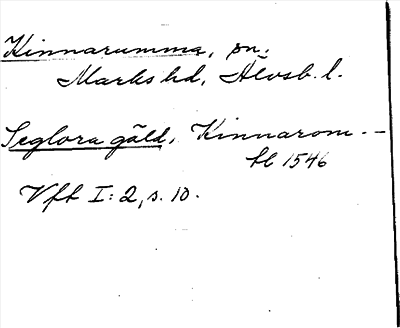 Kinnarumma, sn.
Marks hd, Älvsb. l.
Seglora gäld, Kinnarom --
tl 1546
Vft I: 2, s. 10.